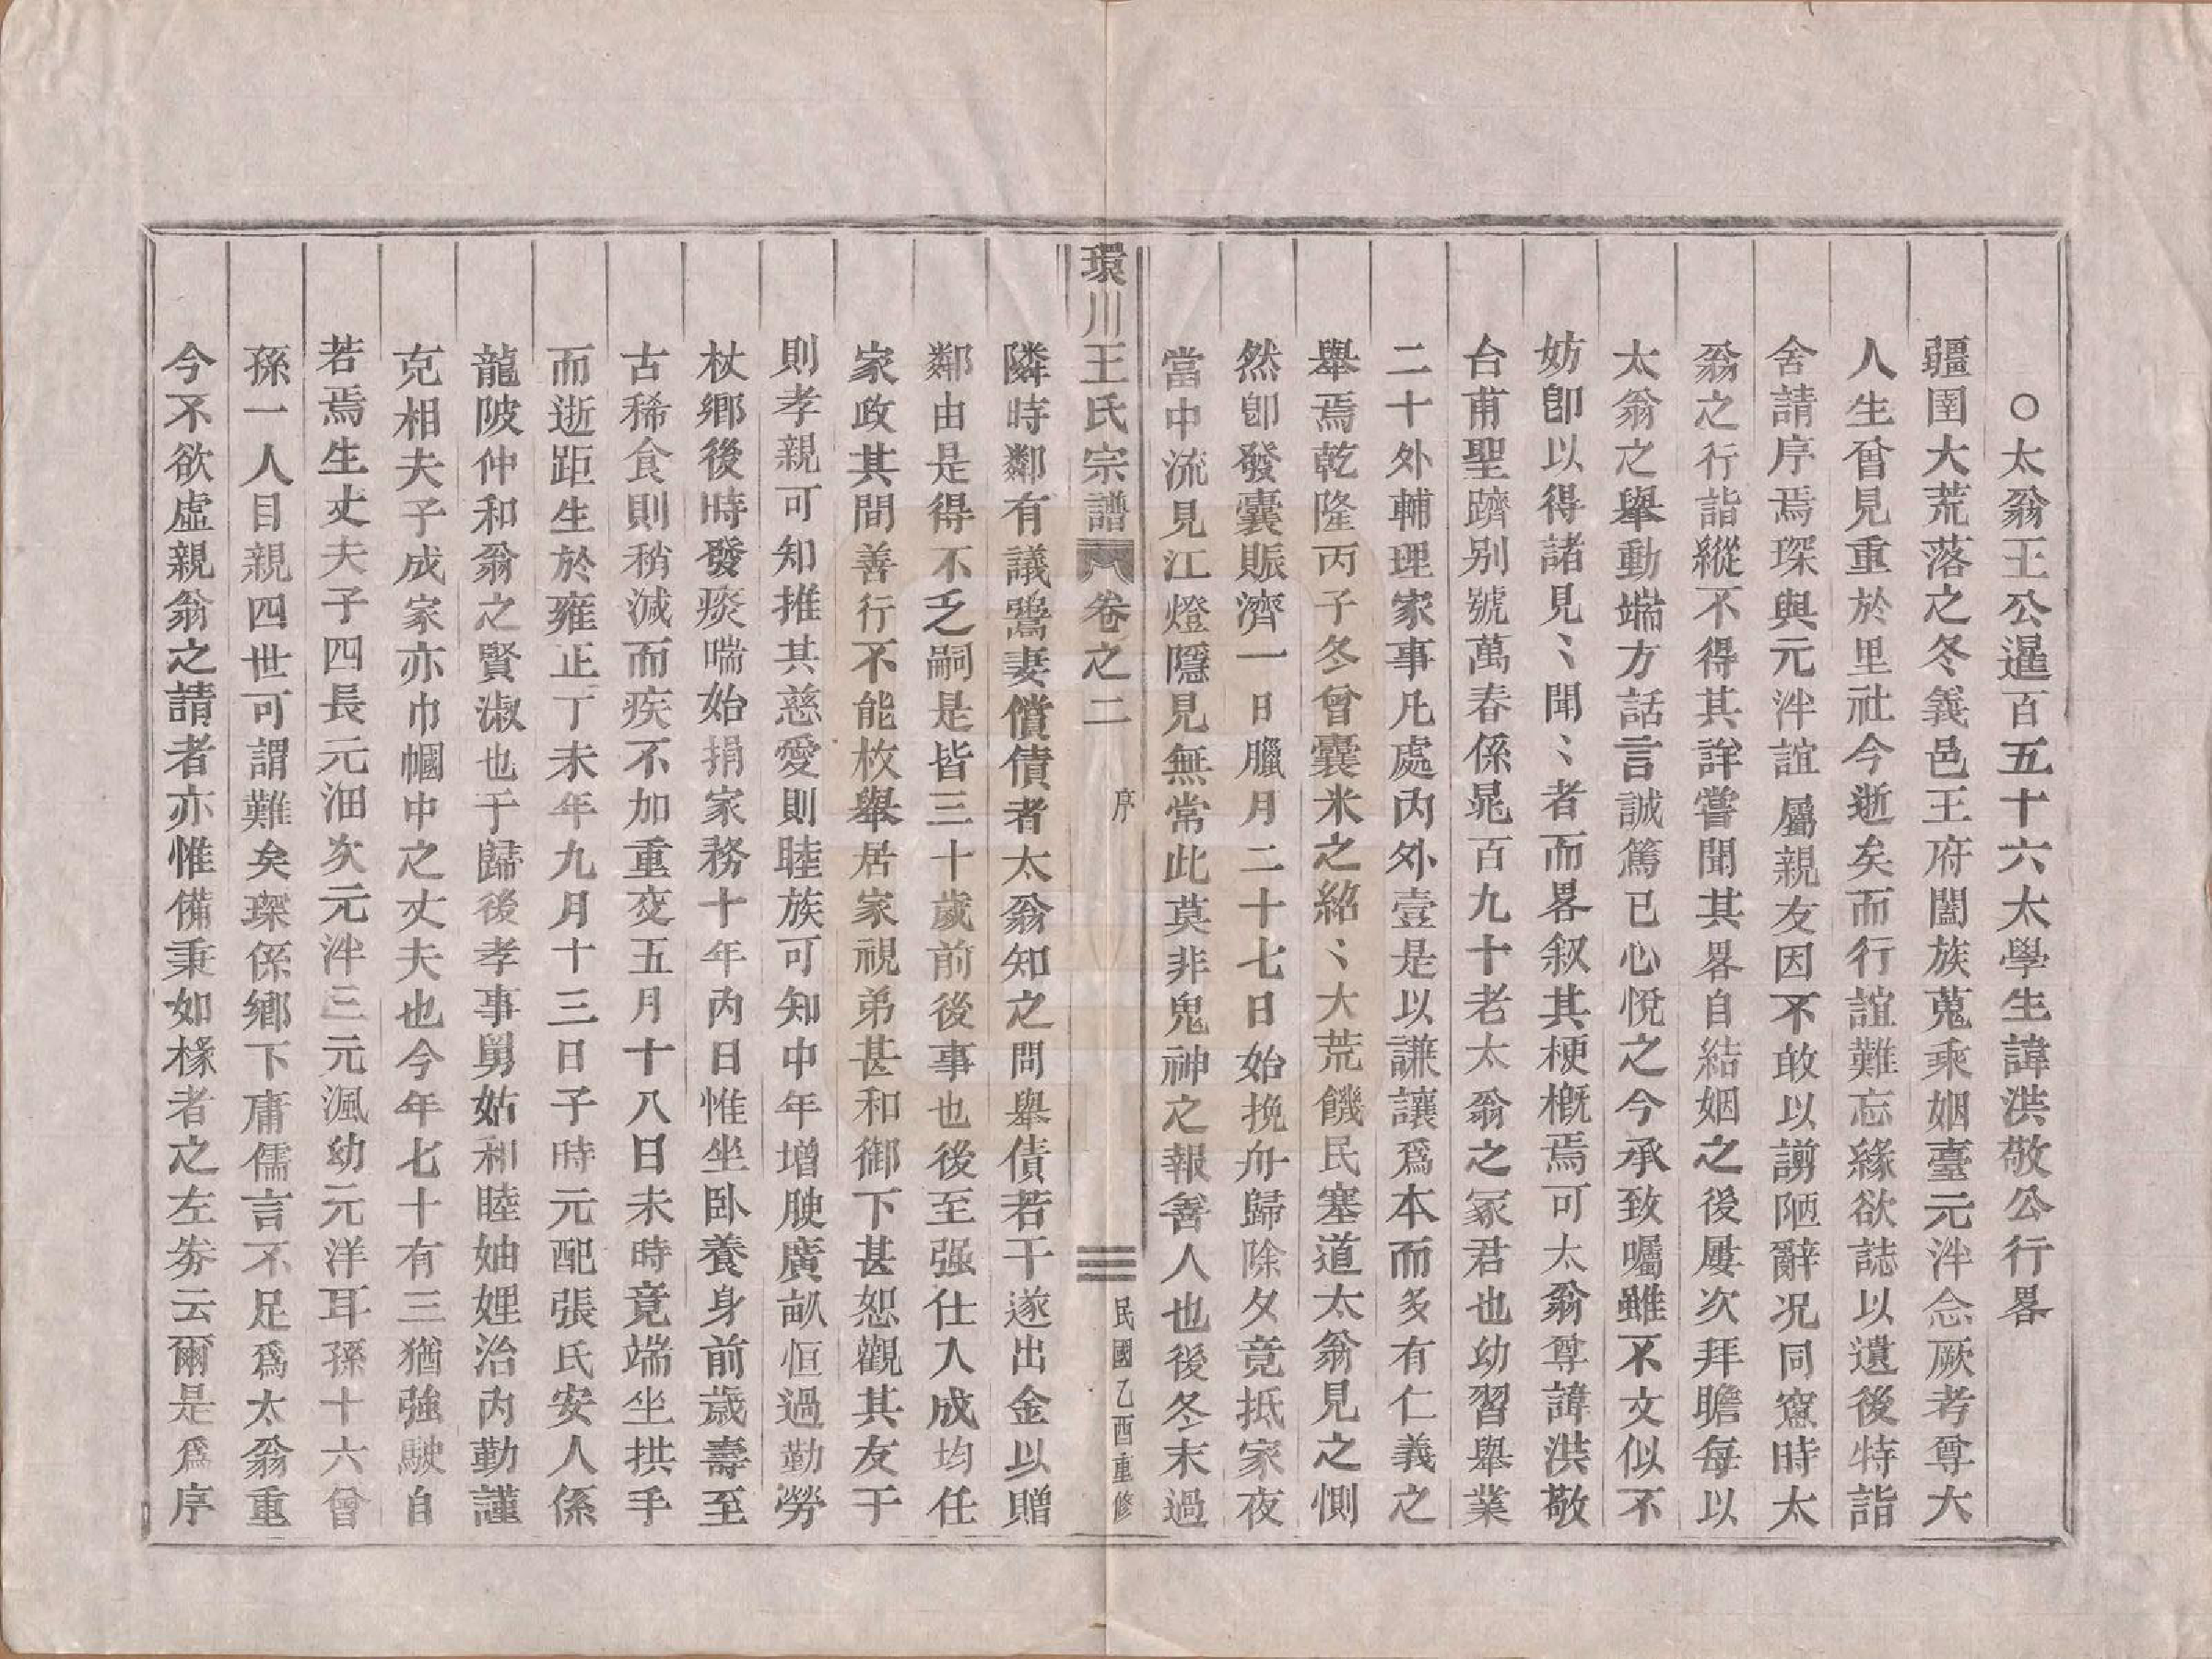 ○太翁王公暹百五十六太學生諱洪敬公行畧
疆圉大荒落之冬義邑王府闔族蒐乘姻臺元泮念厥考尊大
人生曾見重於里社今逝矣而行誼難忘緣欲誌以遺後特詣
舍請序焉琛與元泮誼屬親友因不敢以謭陋辭况同窻時太
翁之行詣縱不得其詳嘗聞其畧自結姻之後屢次拜瞻每以
太翁之舉動端方話言誠篤已心悅之今承致囑雖不文似不
妨卽以得諸見〻聞〻者而畧叙其梗槪焉可太翁尊諱洪敬
台甫聖躋别號萬春係晁百九十老太翁之冢君也幼習舉業
二十外輔理家事凡處内外壹是以謙讓爲本而多有仁義之
舉焉乾隆丙子冬曾囊米之紹〻大荒饑民塞道太翁見之惻
然卽發囊賑濟一日臘月二十七日始挽舟歸除夕竟抵家夜
當中流見江燈隱見無常此莫非鬼神之報善人也後冬末過
環川王氏宗譜 卷之二 序 民國乙酉重修
隣時鄰有議鬻妻償債者太翁知之問舉債若干遂出金以贈
鄰由是得不乏嗣是皆三十歲前後事也後至强仕入成均任
家政其間善行不能枚舉居家視弟甚和御下甚恕觀其友于
則孝親可知推其慈愛則睦族可知中年增腴廣畝恒過勤勞
杖鄉後時發痰喘始捐家務十年内日惟坐卧養身前歲壽至
古稀食則稍減而疾不加重交五月十八日未時竟端坐拱手
而逝距生於雍正丁未年九月十三日子時元配張氏安人係
龍陂仲和翁之賢淑也于歸後孝事舅姑和睦妯娌治内勤謹
克相夫子成家亦巾幗中之丈夫也今年七十有三猶強駛自
若焉生丈夫子四長元沺次元泮三元渢幼元洋耳孫十六曾
孫一人目親四世可謂難矣琛係鄉下庸儒言不足爲太翁重
今不欲虛親翁之請者亦惟備秉如椽者之左券云爾是爲序